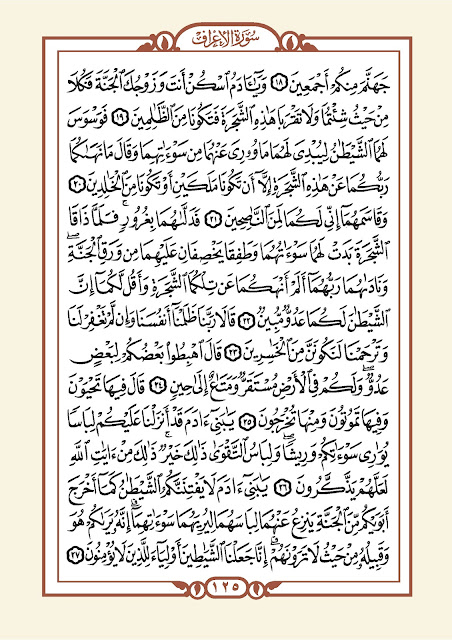 سُورَةُ الأَعْرَافِ
جَهَنَّمَ مِنكُمْ أَجْمَعِينَ ١٨ وَيَـٰٓـَٔادَمُ ٱسْكُنْ أَنتَ وَزَوْجُكَ ٱلْجَنَّةَ فَكُلَا
مِنْ حَيْثُ شِئْتُمَا وَلَا تَقْرَبَا هَـٰذِهِ ٱلشَّجَرَةَ فَتَكُونَا مِنَ ٱلظَّـٰلِمِينَ ١٩ فَوَسْوَسَ
لَهُمَا ٱلشَّيْطَـٰنُ لِيُبْدِىَ لَهُمَا مَا وُۥرِىَ عَنْهُمَا مِن سَوْءَٰتِهِمَا وَقَالَ مَا نَهَىٰكُمَا
رَبُّكُمَا عَنْ هَـٰذِهِ ٱلشَّجَرَةِ إِلَّآ أَن تَكُونَا مَلَكَيْنِ أَوْ تَكُونَا مِنَ ٱلْخَـٰلِدِينَ ٢٠
وَقَاسَمَهُمَآ إِنِّى لَكُمَا لَمِنَ ٱلنَّـٰصِحِينَ ٢١ فَدَلَّىٰهُمَا بِغُرُورٍ ۚ فَلَمَّا ذَاقَا
ٱلشَّجَرَةَ بَدَتْ لَهُمَا سَوْءَٰتُهُمَا وَطَفِقَا يَخْصِفَانِ عَلَيْهِمَا مِن وَرَقِ ٱلْجَنَّةِ ۖ
وَنَادَىٰهُمَا رَبُّهُمَآ أَلَمْ أَنْهَكُمَا عَن تِلْكُمَا ٱلشَّجَرَةِ وَأَقُل لَّكُمَآ إِنَّ
ٱلشَّيْطَـٰنَ لَكُمَا عَدُوٌّ مُّبِينٌ ٢٢ قَالَا رَبَّنَا ظَلَمْنَآ أَنفُسَنَا وَإِن لَّمْ تَغْفِرْ لَنَا
وَتَرْحَمْنَا لَنَكُونَنَّ مِنَ ٱلْخَـٰسِرِينَ ٢٣ قَالَ ٱهْبِطُوا۟ بَعْضُكُمْ لِبَعْضٍ
عَدُوٌّ ۖ وَلَكُمْ فِى ٱلْأَرْضِ مُسْتَقَرٌّ وَمَتَـٰعٌ إِلَىٰ حِينٍ ٢٤ قَالَ فِيهَا تَحْيَوْنَ
وَفِيهَا تَمُوتُونَ وَمِنْهَا تُخْرَجُونَ ٢٥ يَـٰبَنِىٓ ءَادَمَ قَدْ أَنزَلْنَا عَلَيْكُمْ لِبَاسًا
يُوَٰرِى سَوْءَٰتِكُمْ وَرِيشًا ۖ وَلِبَاسُ ٱلتَّقْوَىٰ ذَٰلِكَ خَيْرٌ ۚ ذَٰلِكَ مِنْ ءَايَـٰتِ ٱللَّهِ
لَعَلَّهُمْ يَذَّكَّرُونَ ٢٦ يَـٰبَنِىٓ ءَادَمَ لَا يَفْتِنَنَّكُمُ ٱلشَّيْطَـٰنُ كَمَآ أَخْرَجَ
أَبَوَيْكُم مِّنَ ٱلْجَنَّةِ يَنزِعُ عَنْهُمَا لِبَاسَهُمَا لِيُرِيَهُمَا سَوْءَٰتِهِمَآ ۗ إِنَّهُۥ يَرَىٰكُمْ هُوَ
وَقَبِيلُهُۥ مِنْ حَيْثُ لَا تَرَوْنَهُمْ ۗ إِنَّا جَعَلْنَا ٱلشَّيَـٰطِينَ أَوْلِيَآءَ لِلَّذِينَ لَا يُؤْمِنُونَ ٢٧
١٢٥